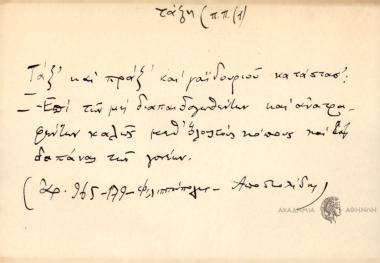 τάξη (π.π.(1)
Τάξ' και πράξ' και γαϊδουριού κατάστασ'.
- Επί των μη διαπαιδαγωγηθέντων και ανατρα-
φέντων καλώς μεθ' όλους τους κόπους και
δαπάνας των γονέων.
(Αρ. 965 - 179 - Φιλιππούπολις - Αποστολίδης)
ΑΚΑΔΗΜΙΑ ΑΘΗΝΩΝ